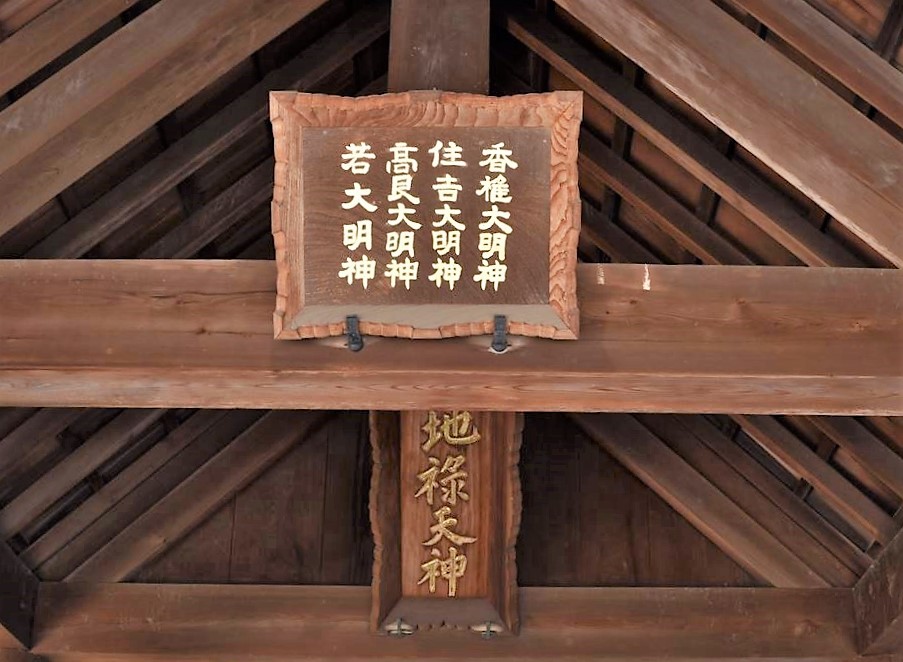 香椎大明神
住吉大明神
高良大明神
若大明神
地禄天神